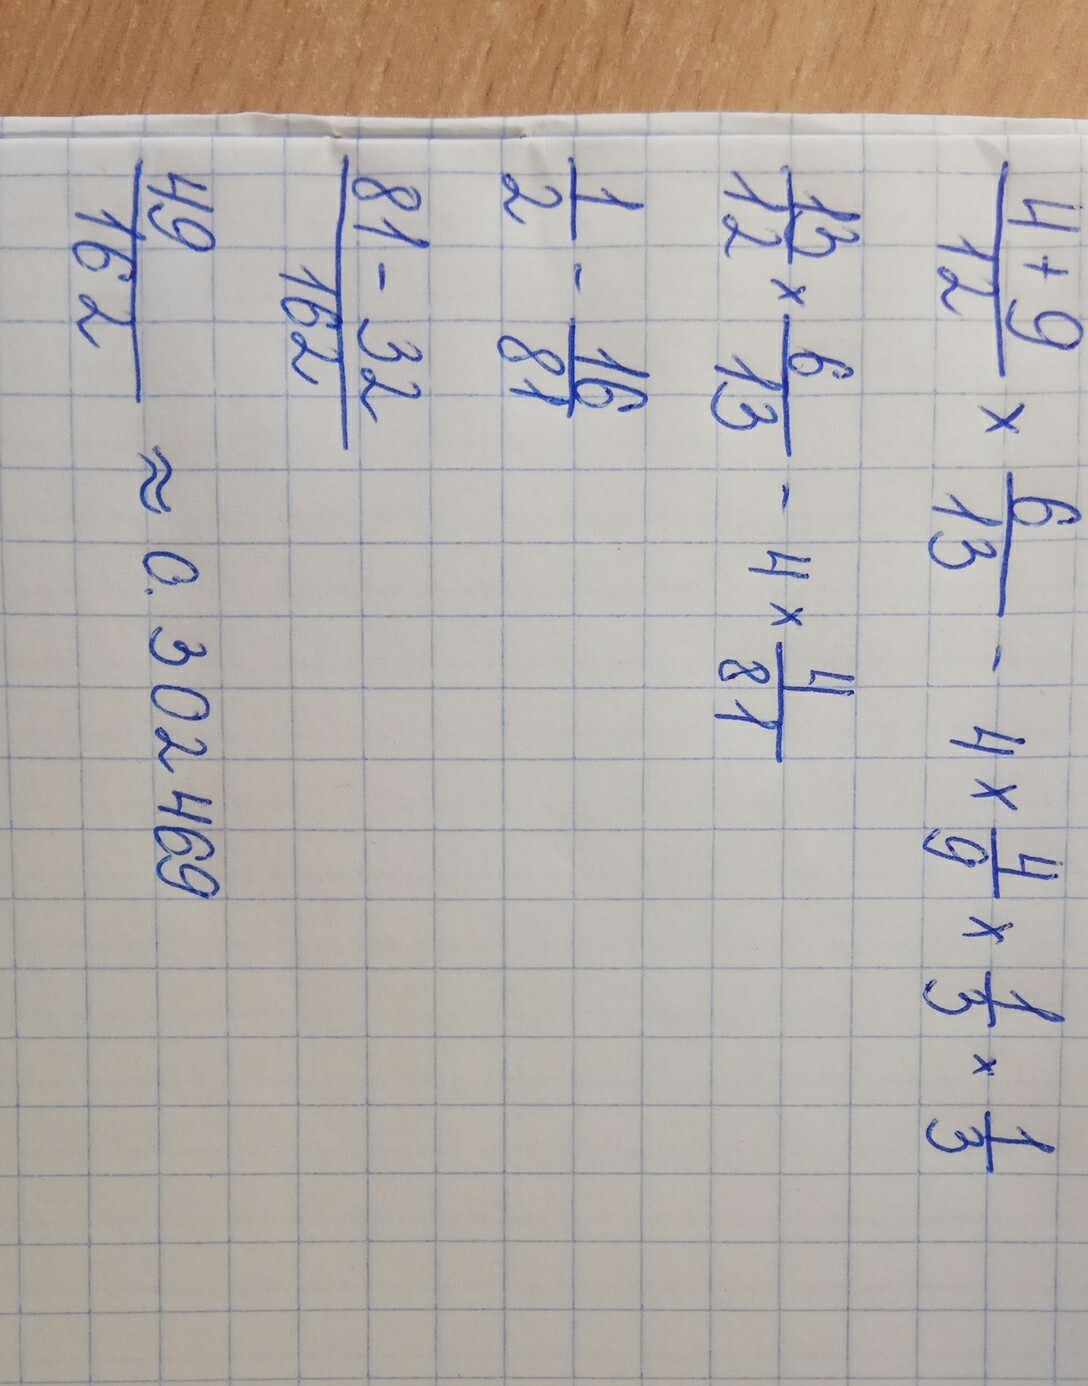 4+9/12 × 6/13 - 4 × 4/9 × 1/3 × 1/3
13/12 × 6/13 - 4 × 4/81
1/2 - 16/81
81-32/162
49/162 ≈ 0.302469